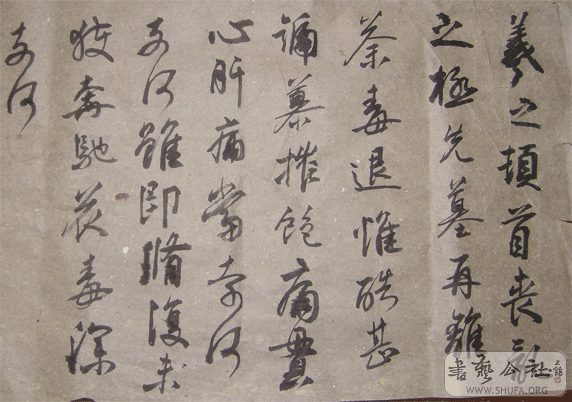 羲之頓首喪亂
之極先墓再離
荼毒追惟酷甚
號慕摧絕痛貫
心肝痛當奈何
奈何雖即脩復未
獲奔馳哀毒深
奈何
書藝公社
WWW.SHUFA.ORG